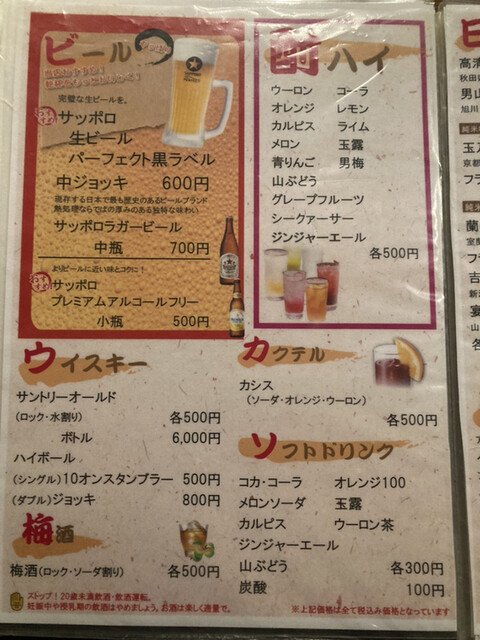 ビール
完璧な生ビールを、
サッポロ
生ビール
パーフェクト黒ラベル
中ジョッキ 600円
現存する日本で最も歴史のあるビールブランド
熱処理ならではの厚みのある独特な味わい
サッポロラガービール
中瓶 700円
よりビールに近い味とコクに!
サッポロ
プレミアムアルコールフリー
小瓶 500円
酎ハイ
ウーロン コーラ
オレンジ レモン
カルピス ライム
メロン 玉露
青りんご 男梅
山ぶどう
グレープフルーツ
シークァーサー
ジンジャーエール
各500円
ウイスキー
サントリーオールド
(ロック・水割り) 各500円
ボトル 6,000円
ハイボール
(シングル)10オンスタンブラー 500円
(ダブル)ジョッキ 800円
梅酒
梅酒(ロック・ソーダ割り) 各500円
カクテル
カシス
(ソーダ・オレンジ・ウーロン)
各500円
ソフトドリンク
コカ・コーラ オレンジ100
メロンソーダ 玉露
カルピス ウーロン茶
ジンジャーエール
山ぶどう 各300円
炭酸 100円
ストップ!20歳未満飲酒・飲酒運転。
妊娠中や授乳期の飲酒はやめましょう。お酒は楽しく適量で。
※上記価格は全て税込み価格となっています
高清
秋田
男山
旭川
純米
玉乃
京都
フラ
純米
蘭
室蘭
フラ
吉
新潟
宴
山
各